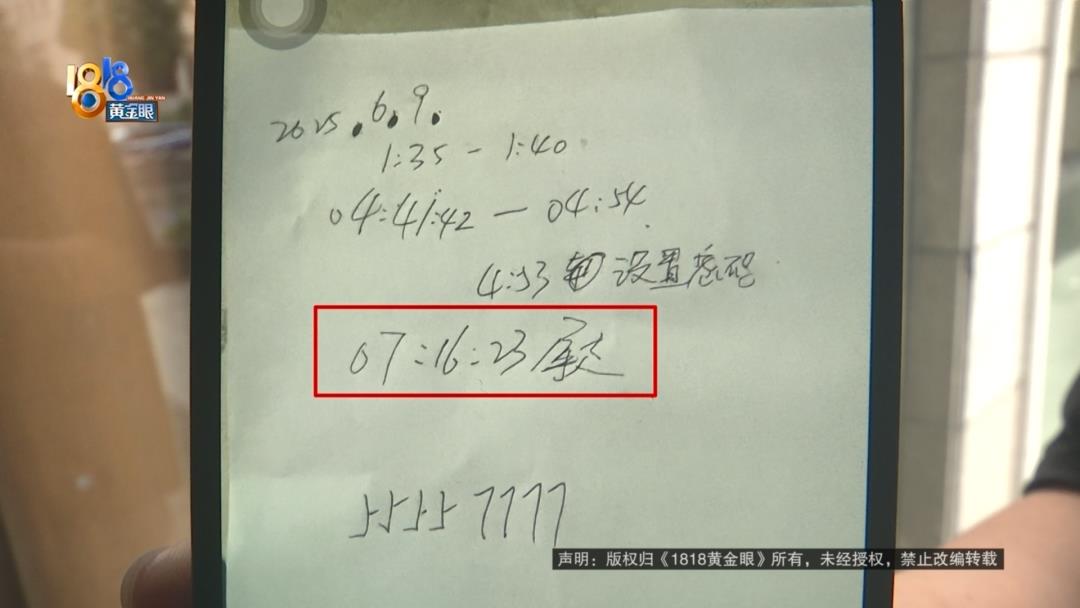 1818
HUANG JIN YAN
黄金眼
2025.6.9.
1:35 - 1:40
04:41:42 — 04:54
4:53 设置密码
07:16:23
55557777
声明：版权归《1818黄金眼》所有，未经授权，禁止改编转载